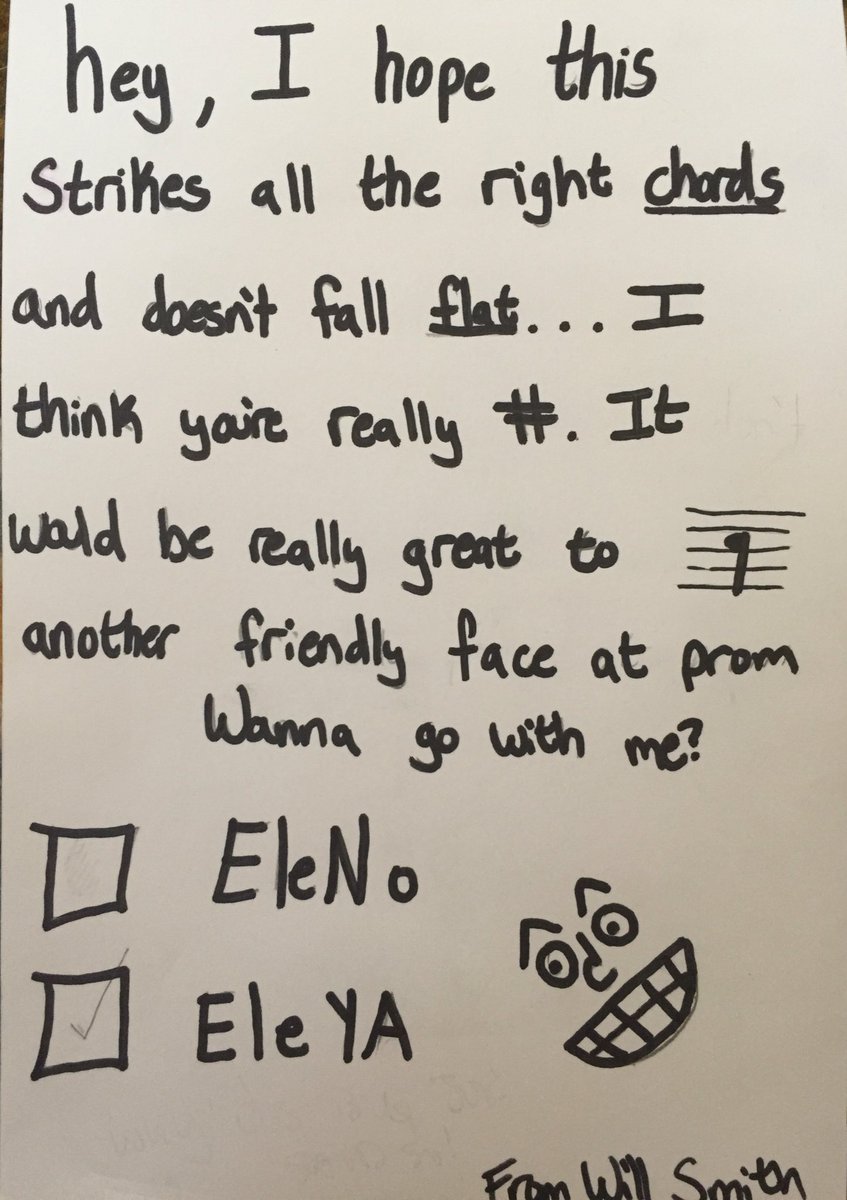 hey, I hope this
Strikes all the right chords
and doesn't fall flat... I
think you're really #. It
would be really great to
another friendly face at prom
Wanna go with me?
EleNo
EleYA
From Will Smith